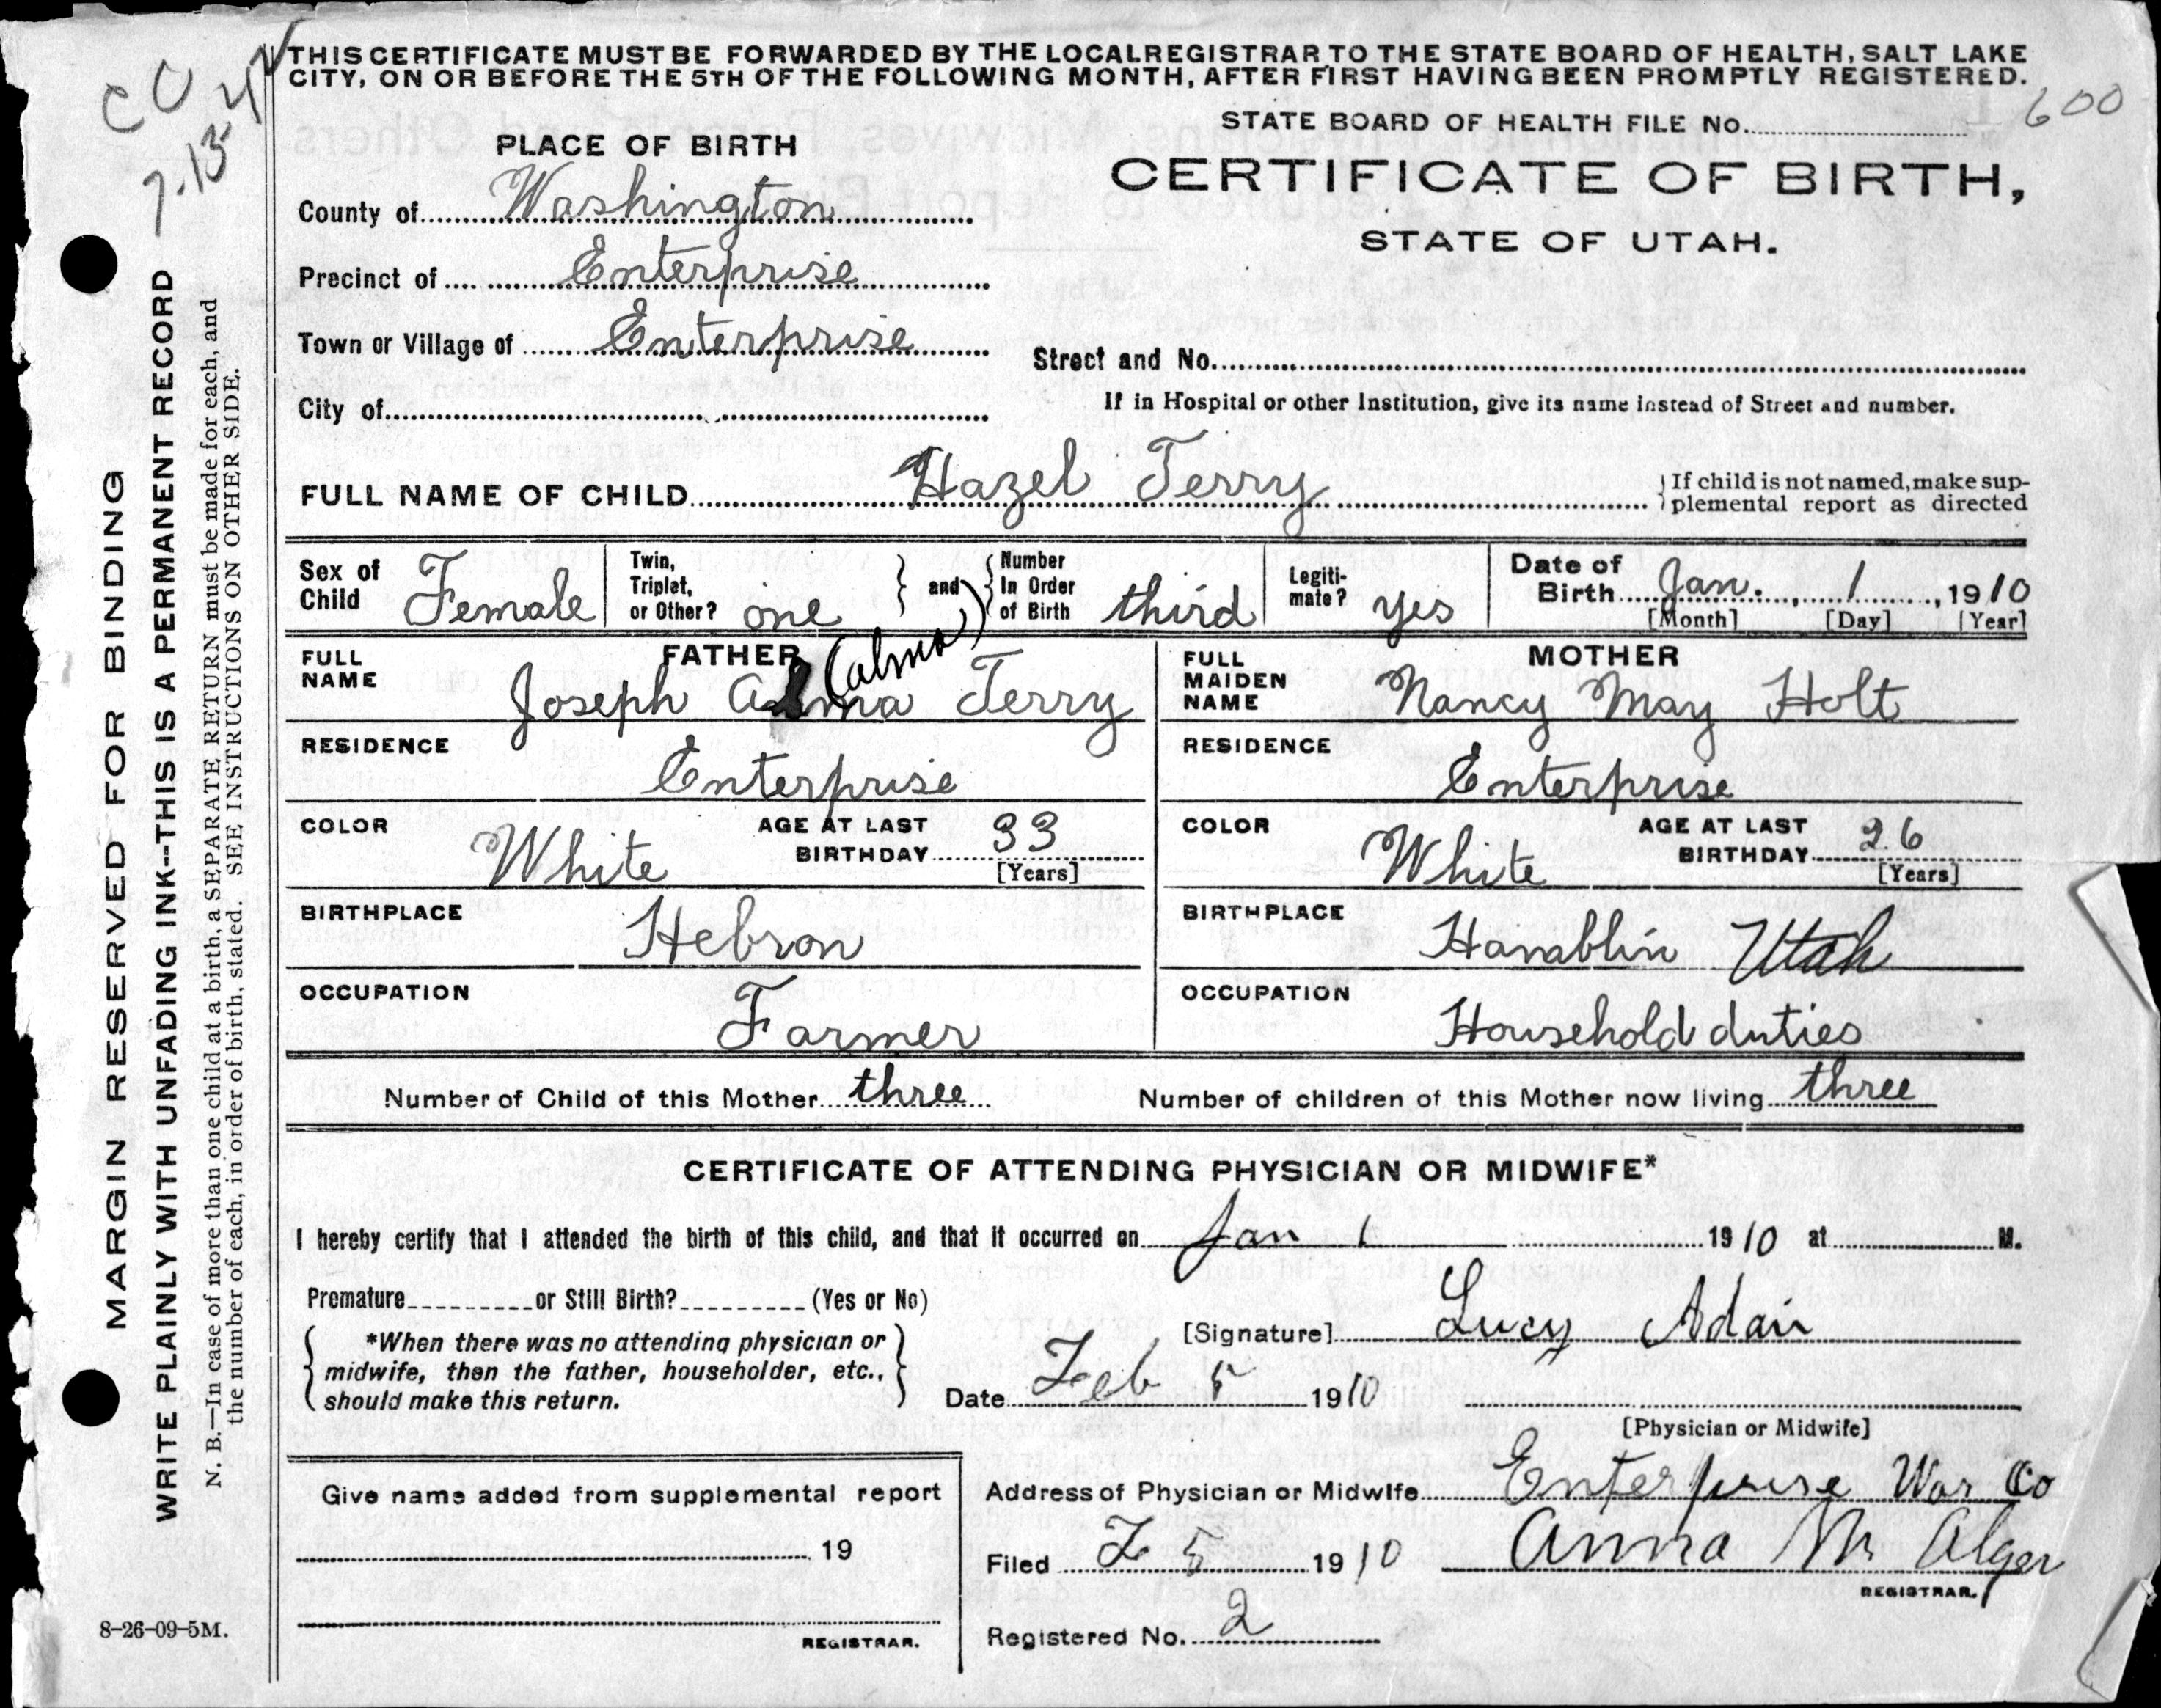 THIS CERTIFICATE MUST BE FORWARDED BY THE LOCAL REGISTRAR TO THE STATE BOARD OF HEALTH, SALT LAKE
CITY, ON OR BEFORE THE 5TH OF THE FOLLOWING MONTH, AFTER FIRST HAVING BEEN PROMPTLY REGISTERED.
STATE BOARD OF HEALTH FILE No. 600
PLACE OF BIRTH
CERTIFICATE OF BIRTH,
STATE OF UTAH.
County of Washington
Precinct of Enterprise
Town or Village of Enterprise
Street and No.
City of
If in Hospital or other Institution, give its name instead of Street and number.
FULL NAME OF CHILD Hazel Terry
If child is not named, make sup-
plemental report as directed
Sex of Child Female
Twin, Triplet, or Other? one
and
Number In Order of Birth third
Legiti-mate? yes
Date of Birth Jan. 1, 1910
[Month] [Day] [Year]
FATHER
FULL NAME Joseph Alma Terry
(Alma)
RESIDENCE Enterprise
COLOR White
AGE AT LAST BIRTHDAY 33
[Years]
BIRTHPLACE Hebron
OCCUPATION Farmer
MOTHER
FULL MAIDEN NAME Nancy May Holt
RESIDENCE Enterprise
COLOR White
AGE AT LAST BIRTHDAY 26
[Years]
BIRTHPLACE Hamblin Utah
OCCUPATION Household duties
Number of Child of this Mother three Number of children of this Mother now living three
CERTIFICATE OF ATTENDING PHYSICIAN OR MIDWIFE*
I hereby certify that I attended the birth of this child, and that it occurred on Jan 1 1910 at M.
Premature or Still Birth? (Yes or No)
*When there was no attending physician or
midwife, then the father, householder, etc.,
should make this return.
[Signature] Lucy Adair
Date Feb 5 1910
[Physician or Midwife]
Give name added from supplemental report
19
REGISTRAR.
Address of Physician or Midwife Enterprise Was Co
Filed F 5 1910 Anna M Alger
REGISTRAR.
Registered No. 2
8-26-09-5M.
MARGIN RESERVED FOR BINDING
WRITE PLAINLY WITH UNFADING INK--THIS IS A PERMANENT RECORD
N. B.—In case of more than one child at a birth, a SEPARATE RETURN must be made for each, and
the number of each, in order of birth, stated. SEE INSTRUCTIONS ON OTHER SIDE.
CC
7-13-42